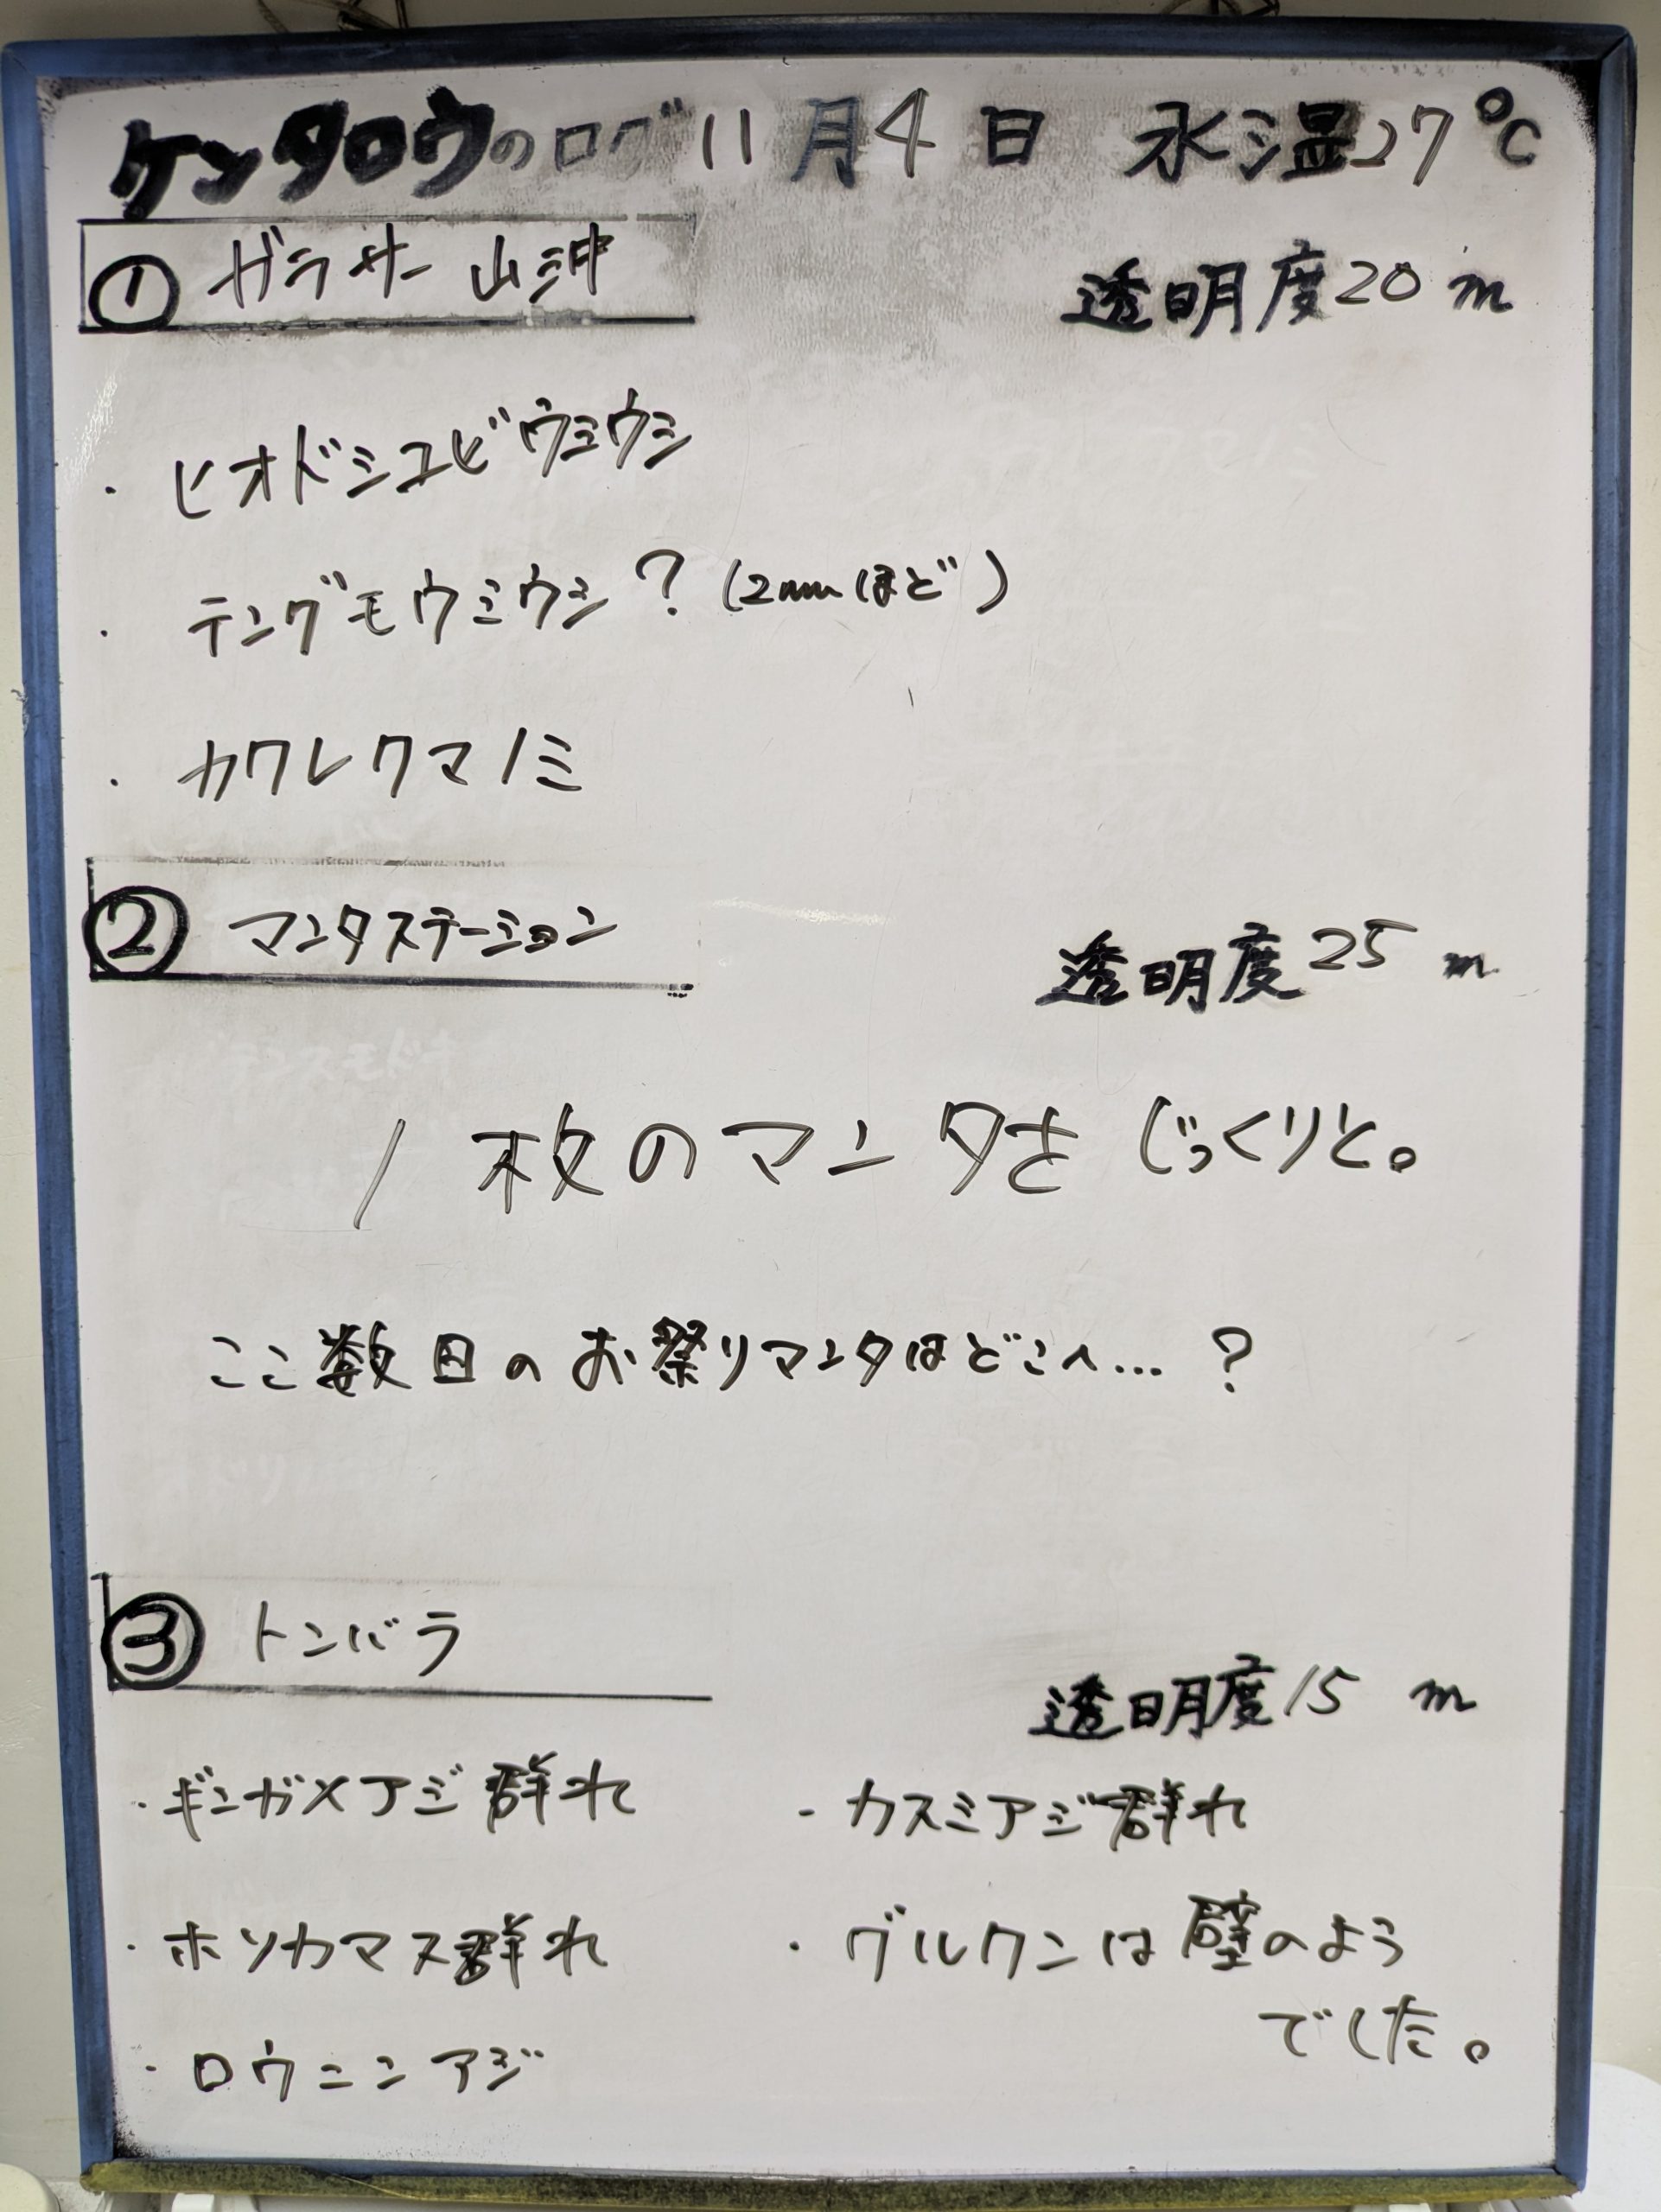 ケンタロウのログ 11月4日 水温27℃
① ガラサー山沖
透明度20m
・ヒオドシユビウミウシ
・テングモウミウシ?(2mmほど)
・カクレクマノミ
② マンタステーション
透明度25m
1枚のマンタをじっくりと。
ここ数日のお祭りマンタはどこへ...?
③ トンバラ
透明度15m
・ギンガメアジ群れ
・カスミアジ群れ
・ホソカマス群れ
・グルクンは壁のよう
でした。
・ロウニンアジ